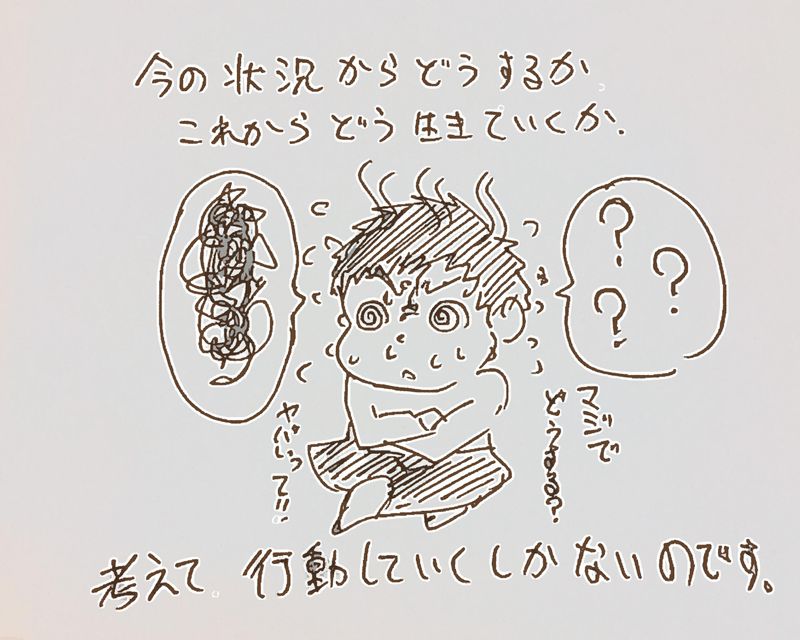 今の状況からどうするか
これからどう生きていくか.
?
?
?
マジで
どうする?
ヤバいって!!
考えて、行動していくしかないのです。